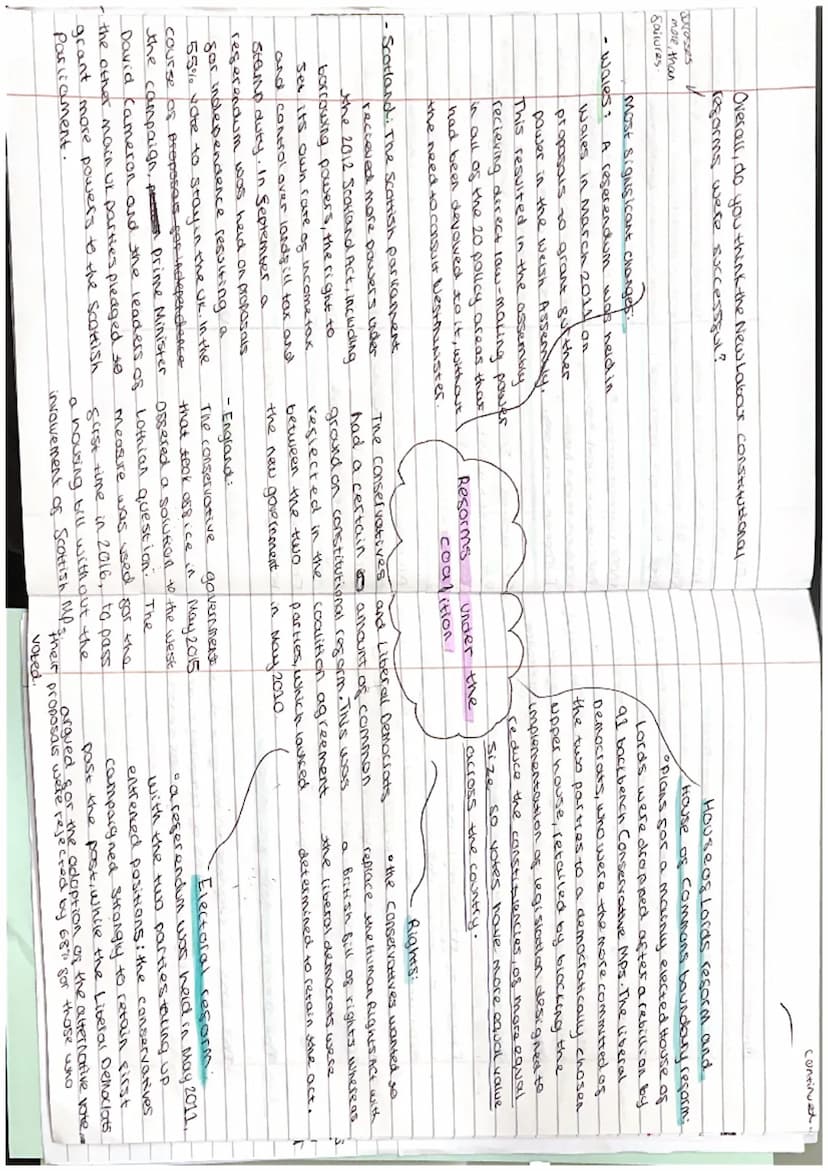 Overall, do you think the New Labor constitutional
reforms were successful?
successes
more, than
failures
Most significant changes:
- Wales: A referendum was held in
Wales in March 2011 on
proposals to grant further
power in the Welsh Assembly.
This resulted in the assembly
recieving derect law-making power
in all of the 20 policy areas that
had been devowed to it, without
the need to consult Westminister.
- Scotland: The Scottish parliament
recieved more powers under
the 2012 Scotland Act, including
borrowing powers, the right to
set its own rate of income tax
and control over landfill tax and
stamp duty. In September a
referendum was held on proposals
for independence resulting a
55% vote to stay in the UK. In the
course of proposals for independence
the campaign, prime Minister
David Cameron and the leaders of
the other main UK parties pledged to
grant more powers to the Scottish
Parliament.
Reforms under the
coalition
The conservatives and Liberal Democrats
had a certain amount of common
ground on constitutional reform. This was
reflected in the coalition agreement
between the two parties, which lacked
the new government in May 2010
- England:
The conservative government
that took office in May 2015
offered a solution to the West
Lothian question. The
measure was used for the
first time in 2016, to pass
a housing bill without the
involvement of Scottish MPs.
continued..
House of Lords reform and
House of Commons boundary reform:
° Plans for a mainly elected House of
Lords were dropped after a rebillion by
91 backbench Conservative MPs. The liberal
Democrats, who were the more committed of
the two parties to a democratically chosen
upper house, retailed by blocking the
implementation of legislation designed to
reduce the constitiencies of more equal
size so votes have more equal value
across the country.
Rights:
° the Conservatives wanted to
replace the Human Rights Act with
a British Bill of rights whereas
the liberal democrats were
determined to retain the act.
Electoral reform:
° a referendum was held in May 2011,
with the two parties taking up
entrened positions: the conservatives
campaigned strongly to retain first
past the post, while the Liberal Democrats
argued for the adoption of the alternative vote -
their proposals were rejected by 68% for those who
voted.